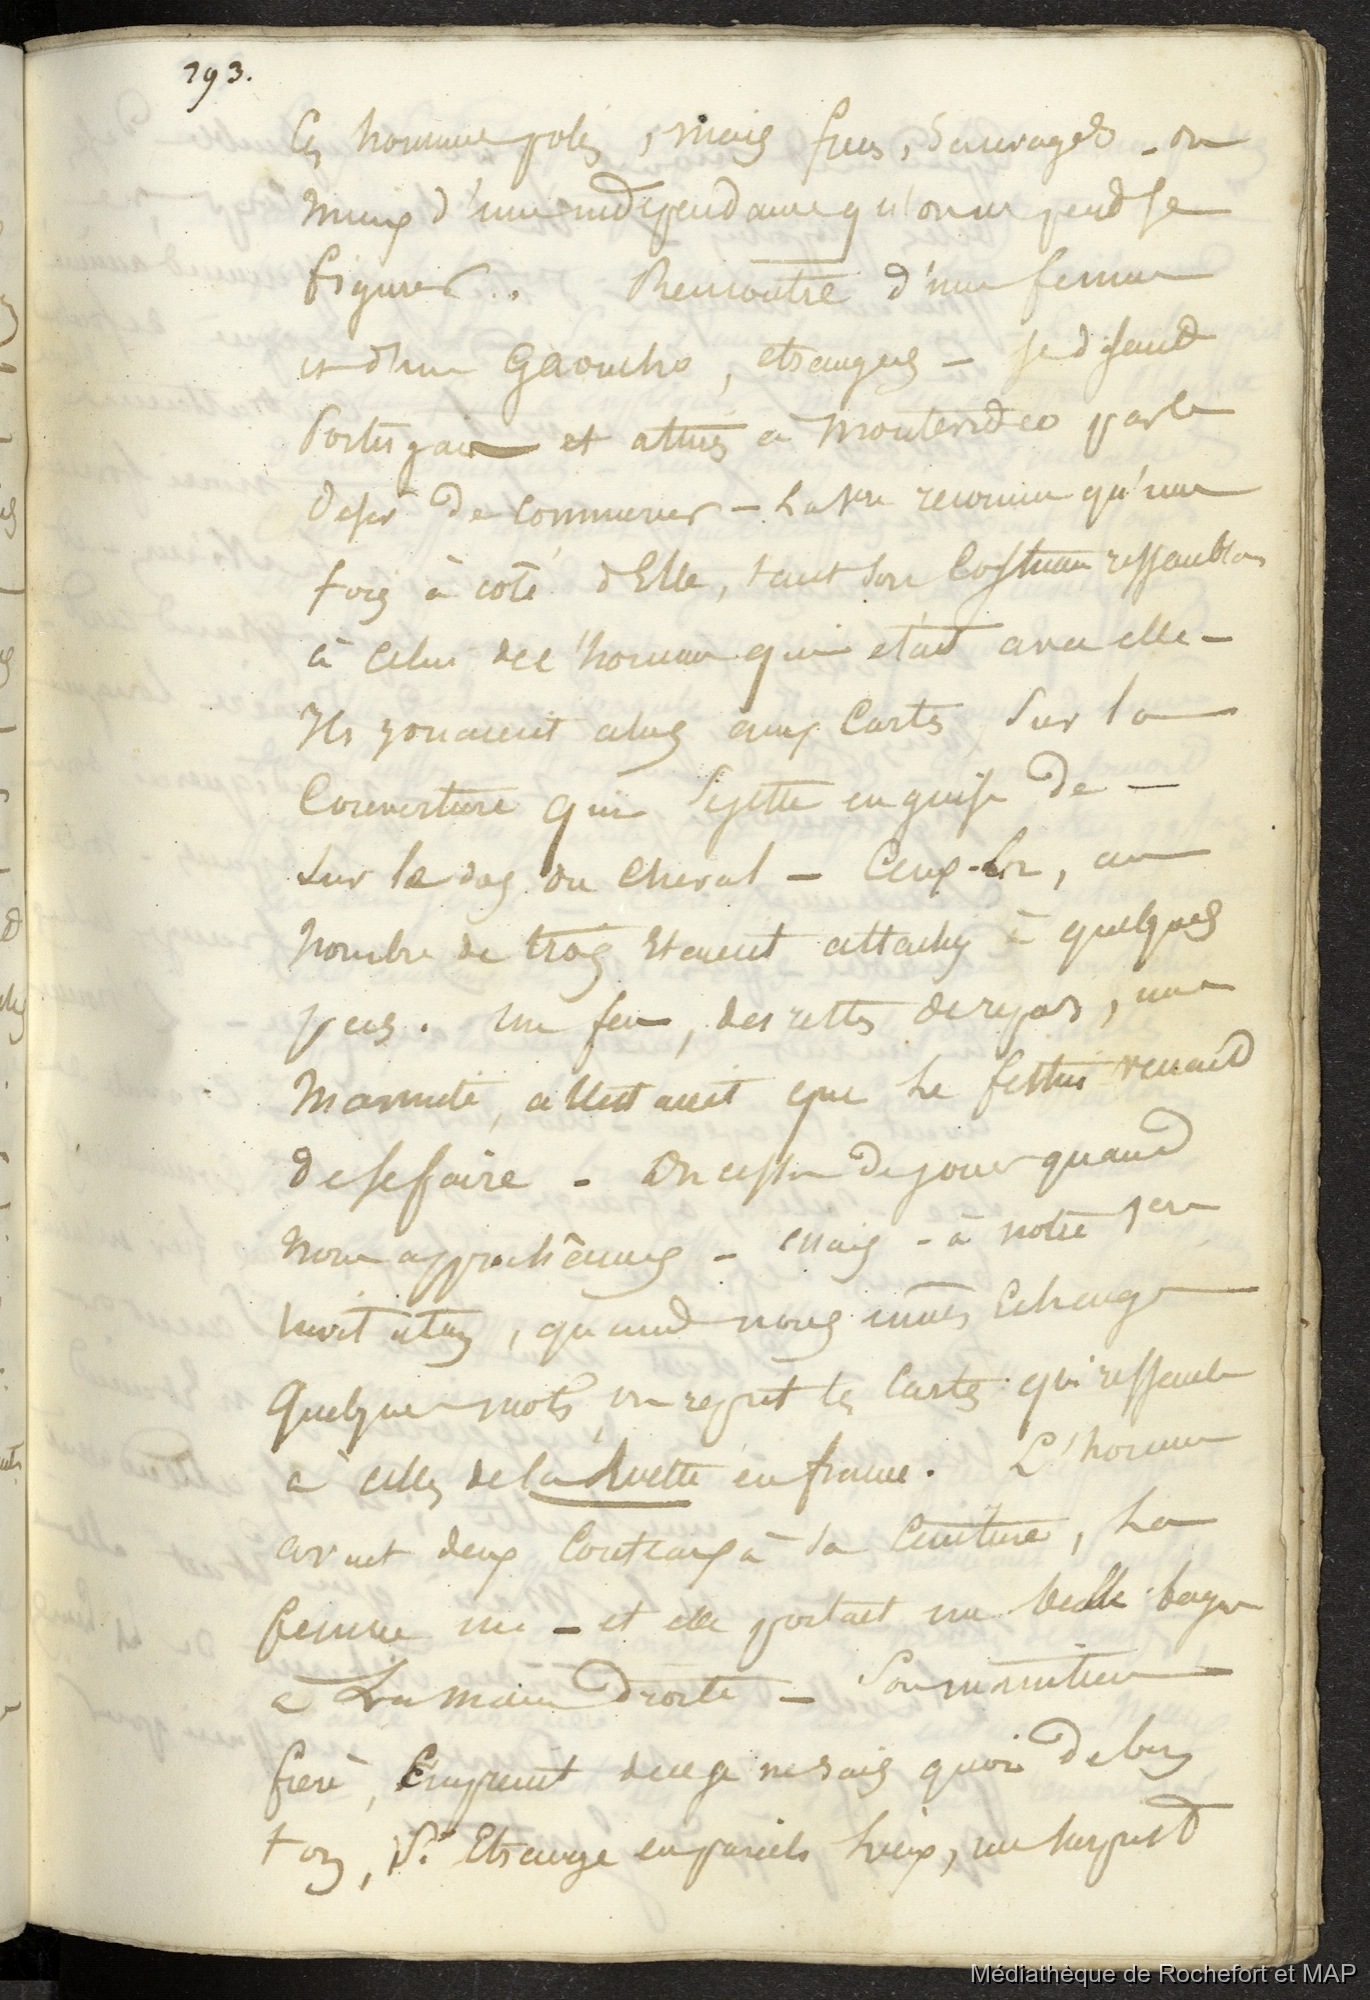 193.
Ces hommes polis, mais fiers, sauvages _ ou
mieux d'une independance qu'on ne peut se
figurer.. Rencontre d'une femme
et d'un Gaoucho, etrangers _ se disant
Portugais et attirés à Montevideo par le
desir de commercer _ La 1ere reconnue qu'une
fois à coté d'Elle, tant son Costume ressemblait
à celui de l'homme qui etait avec elle _
Ils jouaient alors aux Cartes sur la
Couverture qui se jette en guise de _
sur le dos du cheval _ Ceux-ci, au
nombre de trois etaient attachés à quelques
pas. Un feu, des restes de repas, une
Marmite, attestaient que le festin venait
de se faire _ On cessa de jouer quand
nous approchâmes _ mais _ à notre 1ere
invitation, quand nous eumes Echangé
Quelques mots, on reprit les Cartes qui ressemblent
à celles de la luette en france. L'homme
avait deux Couteaux à sa Ceinture, La
femme un _ et elle portait une belle bague
à La main droite _ Son maintien
fier, Empreint de ce je ne sais quoi de bon
ton, Si Etrange en pareils Lieux, me surprit